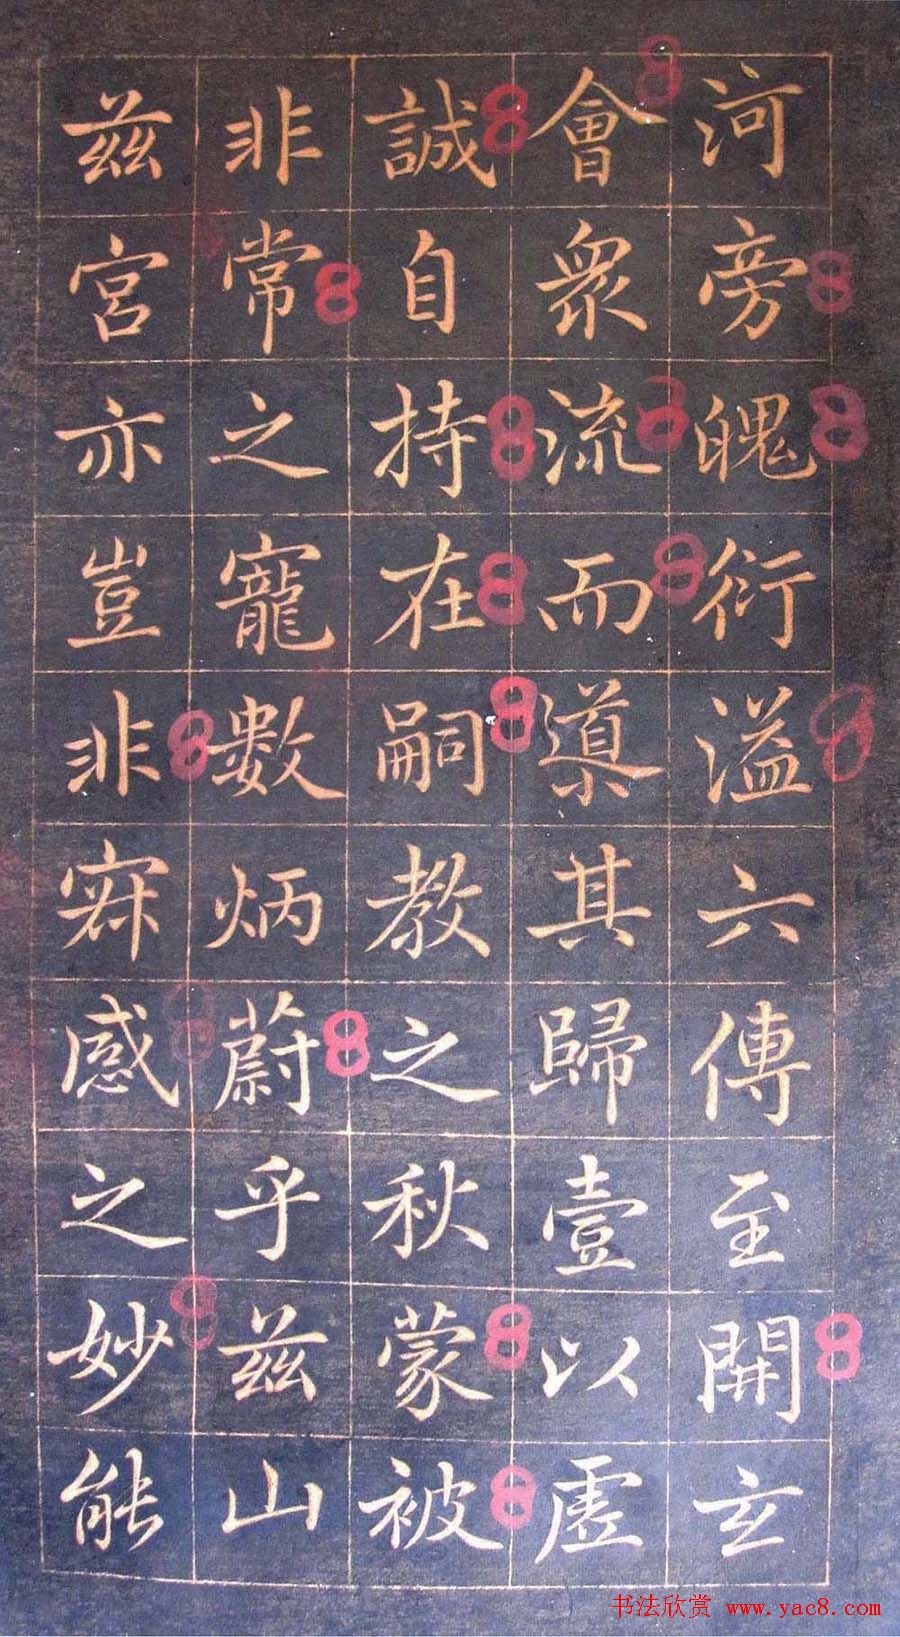 河旁魄衍溢六傳至開玄
會衆流而導其歸壹以虛
誠自持在嗣教之秋蒙被
非常之寵數炳蔚乎茲山
茲宮亦豈非寂感之妙能
书法欣赏 www.yac8.com